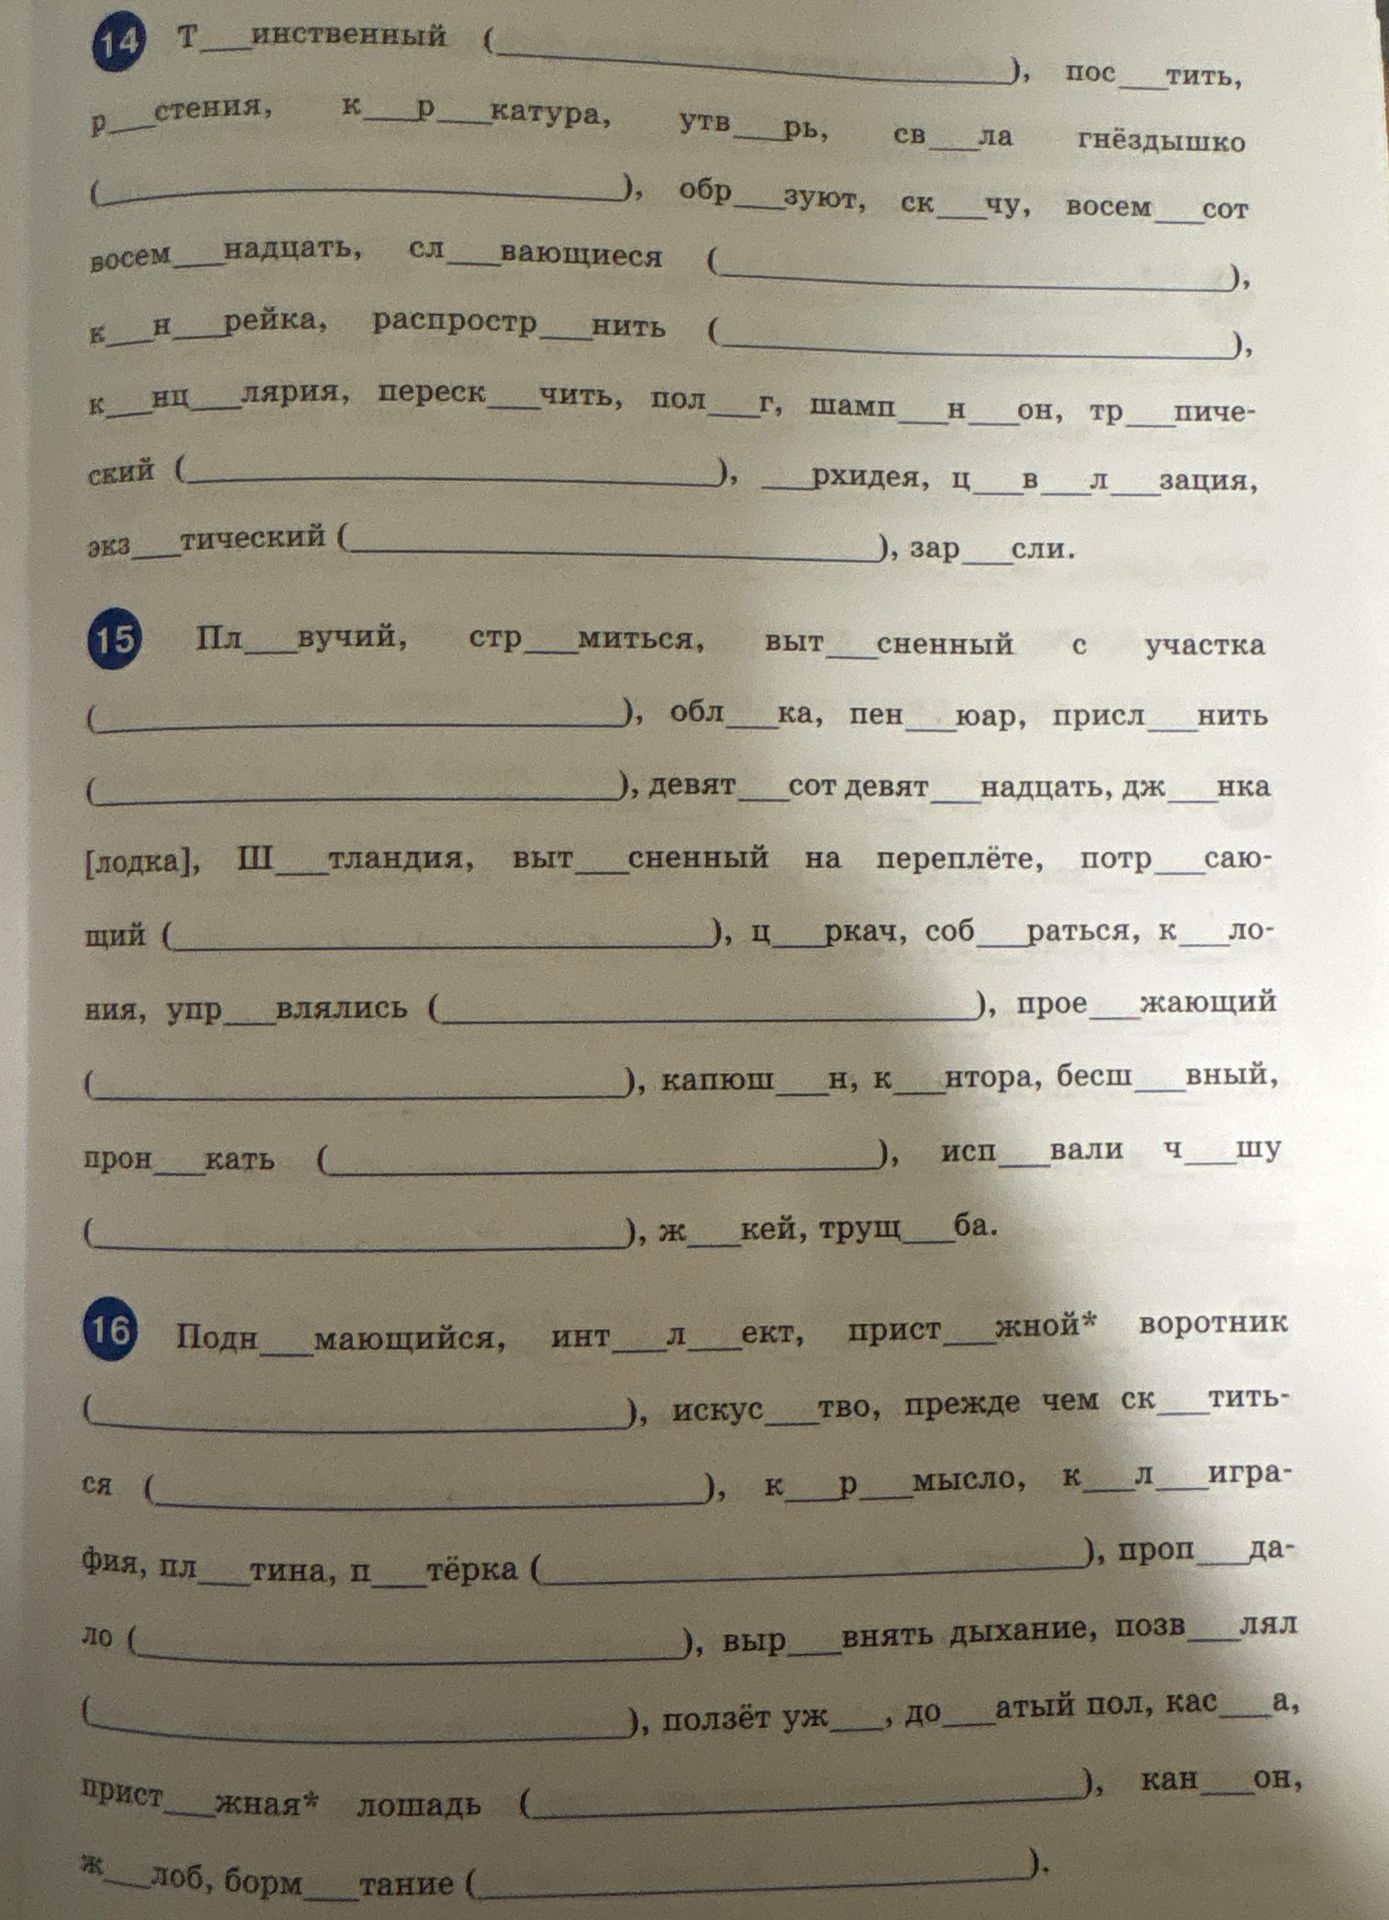 14 Т___инственный (______________), пос___тить,
р___стения, к___р___катура, утв___рь, св___ла гнёздышко
(______________), обр___зуют, ск___чу, восем___сот
восем___надцать, сл___вающиеся (______________),
к___н___рейка, распростр___нить (______________),
к___нц___лярия, переск___чить, пол___г, шамп___н___он, тр___пиче-
ский (______________), ___рхидея, ц___в___л___зация,
экз___тический (______________), зар___сли.
15 Пл___вучий, стр___миться, выт___сненный с участка
(______________), обл___ка, пен___юар, присл___нить
(______________), девят___сот девят___надцать, дж___нка
[лодка], Ш___тландия, выт___сненный на переплёте, потр___саю-
щий (______________), ц___ркач, соб___раться, к___ло-
ния, упр___влялись (______________), прое___жающий
(______________), капюш___н, к___нтора, бесш___вный,
прон___кать (______________), исп___вали ч___шу
(______________), ж___кей, трущ___ба.
16 Подн___мающийся, инт___л___ект, прист___жной* воротник
(______________), искус___тво, прежде чем ск___тить-
ся (______________), к___р___мысло, к___л___игра-
фия, пл___тина, п___тёрка (______________), проп___да-
ло (______________), выр___внять дыхание, позв___лял
(______________), ползёт уж___, до___атый пол, кас___а,
прист___жная* лошадь (______________), кан___он,
ж___лоб, борм___тание (______________).